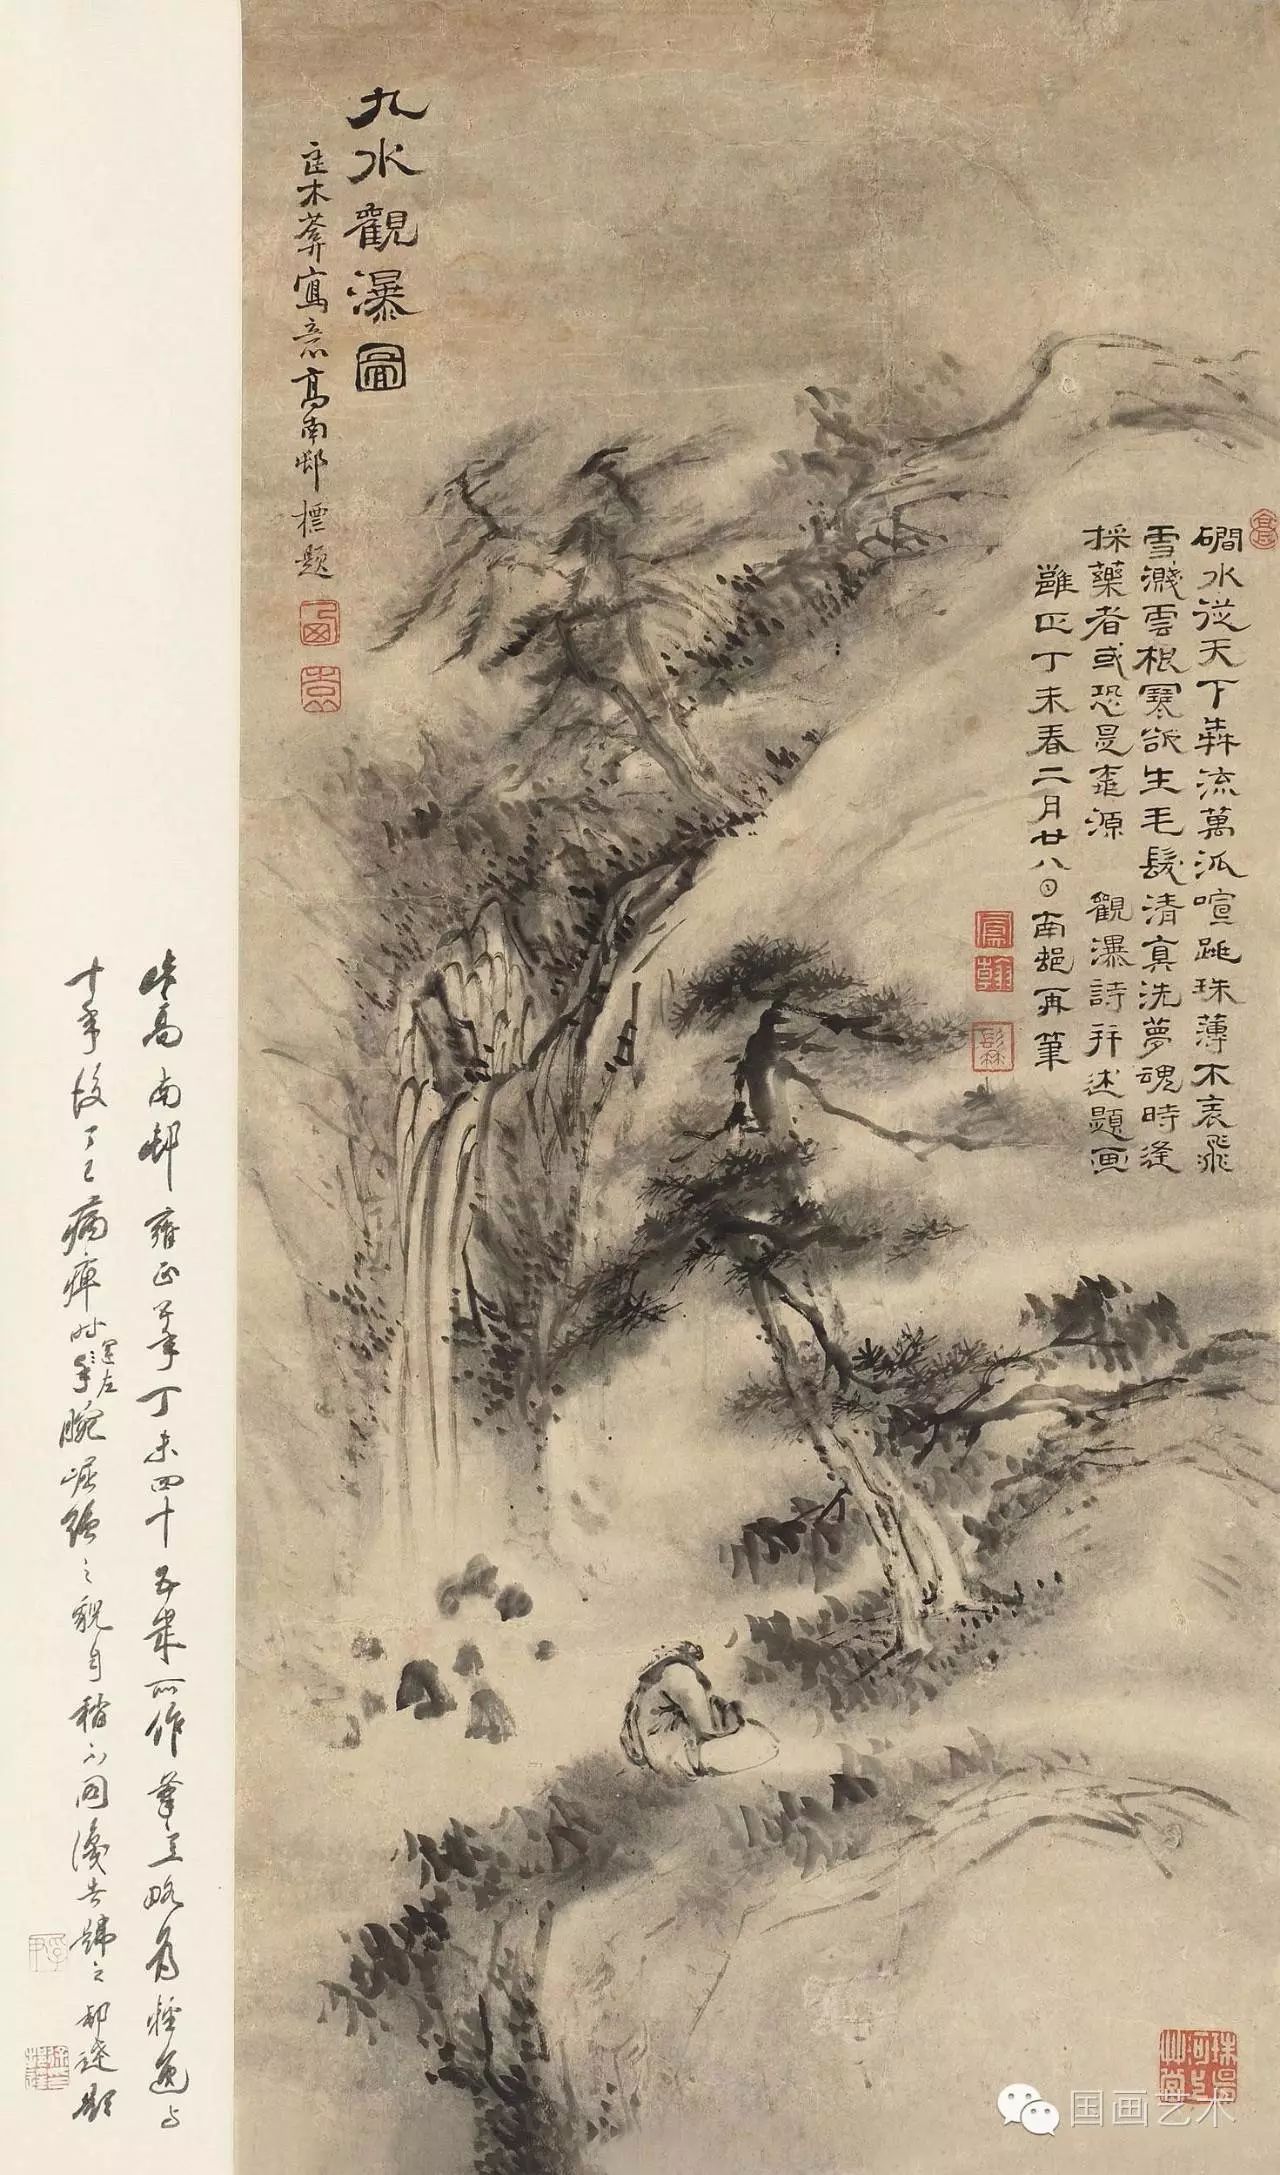 九水觀瀑圖
寫意高南邨標題
磵水從天下犇流萬派喧跳珠薄不衰飛
雪濺雲根寒欲生毛髮清真洗夢魂時逢
採藥者或恐是桃源　觀瀑詩并述題画
雝正丁未春二月廿八日南邨再筆
此高南邨雍正五年丁未四十五歲所作筆意略為輕逸与
十年後丁巳病痹時運左手腕崛强之貌自稍不同
国画艺术